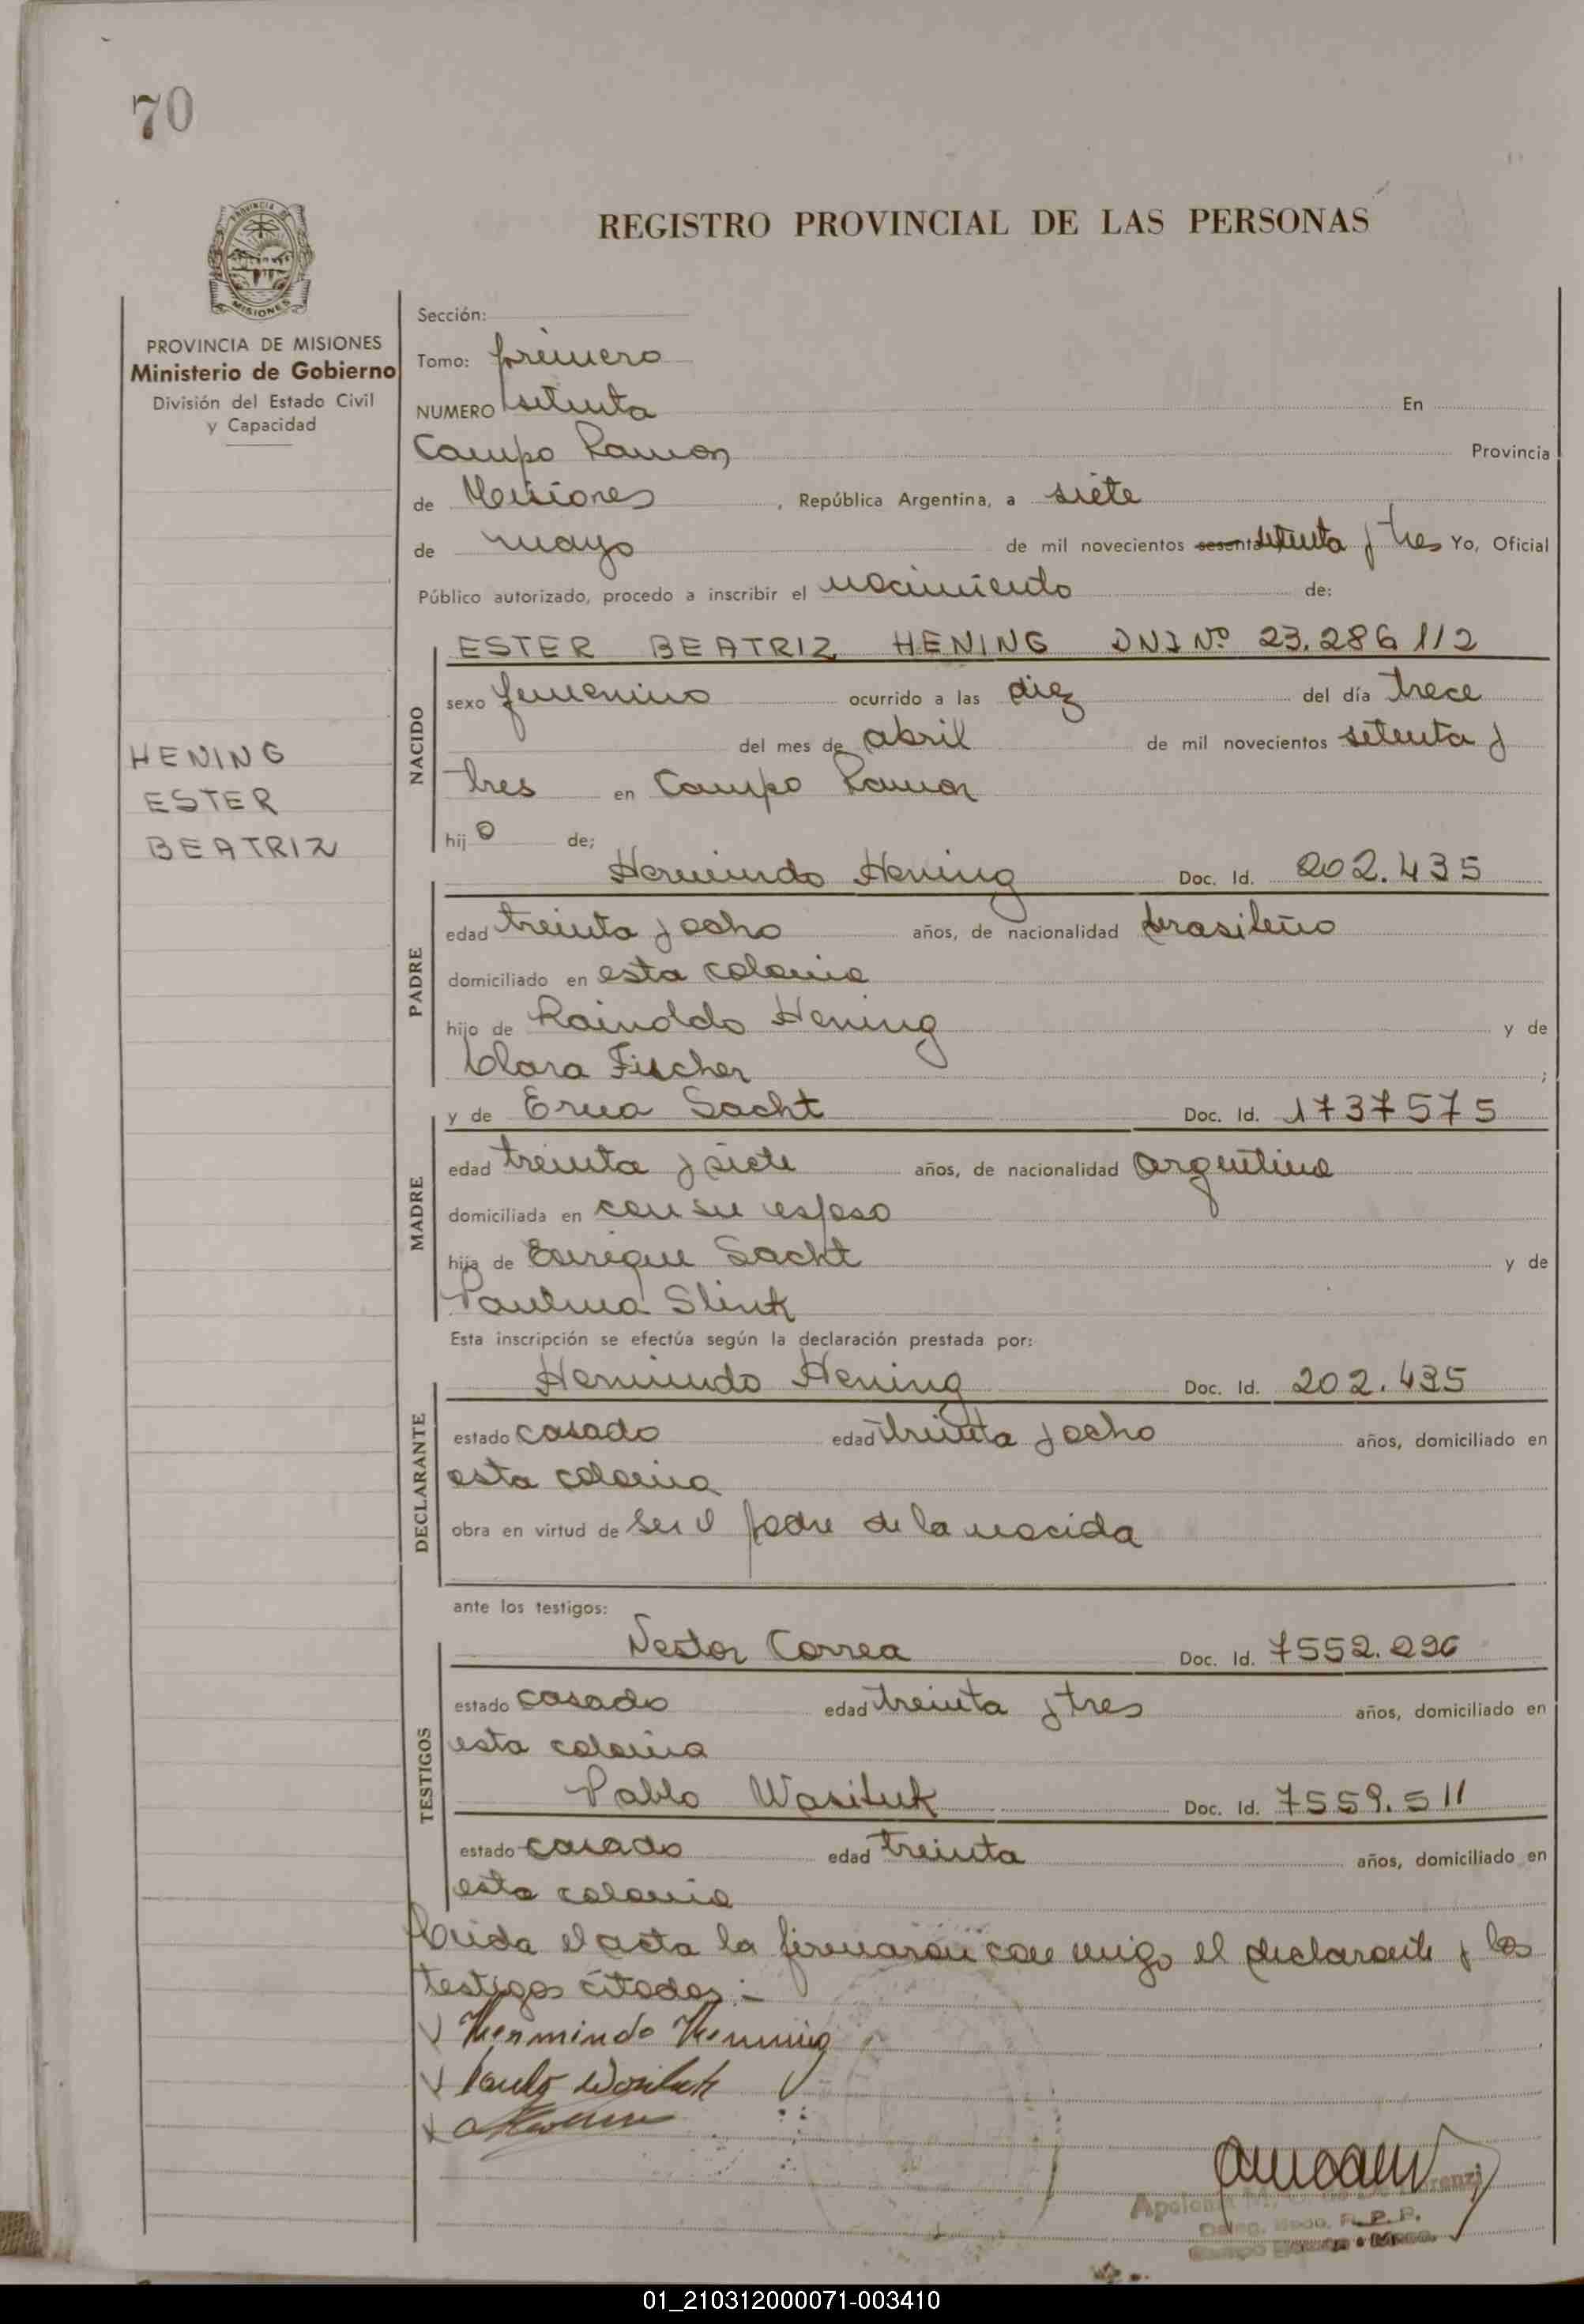 70
PROVINCIA DE
MISIONES
REGISTRO PROVINCIAL DE LAS PERSONAS
PROVINCIA DE MISIONES
Ministerio de Gobierno
División del Estado Civil
y Capacidad
HENING
ESTER
BEATRIZ
Sección:
Tomo: primero
NUMERO setenta En
Campo Ramon Provincia
de Misiones, República Argentina, a siete
de mayo de mil novecientos sesenta setenta y tres Yo, Oficial
Público autorizado, procedo a inscribir el nacimiento de:
NACIDO
ESTER BEATRIZ HENING DNI Nº 23.286 112
sexo femenino ocurrido a las diez del día trece
del mes de abril de mil novecientos setenta y
tres en Campo Ramon
hijo de;
PADRE
Hermindo Hening Doc. Id. 202.435
edad treinta y ocho años, de nacionalidad brasileño
domiciliado en esta colonia
hijo de Rainoldo Hening y de
Clara Fischer ;
MADRE
y de Erna Sacht Doc. Id. 1737575
edad treinta y siete años, de nacionalidad argentina
domiciliada en con su esposo
hija de Enrique Sacht y de
Paulina Slink
Esta inscripción se efectúa según la declaración prestada por:
DECLARANTE
Hermindo Hening Doc. Id. 202.435
estado casado edad treinta y ocho años, domiciliado en
esta colonia
obra en virtud de ser el padre de la nacida
ante los testigos:
TESTIGOS
Nestor Correa Doc. Id. 7552.296
estado casado edad treinta y tres años, domiciliado en
esta colonia
Pablo Wasiluk Doc. Id. 7559.511
estado casado edad treinta años, domiciliado en
esta colonia
Leida el acta la firmaron con migo el declarante y los
testigos citados:-
Hermindo Henning
01_210312000071-003410